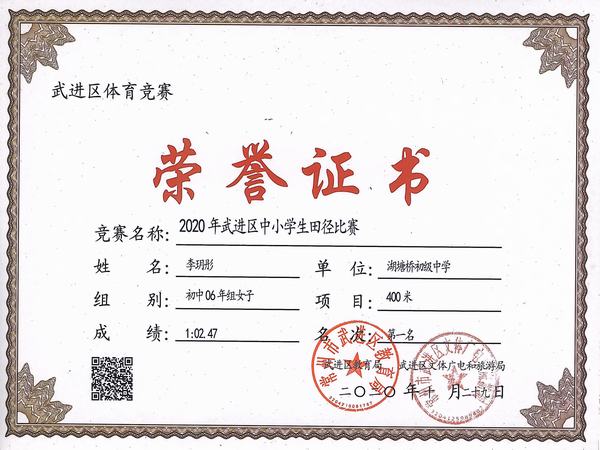 武进区体育竞赛
荣誉证书
竞赛名称：2020年武进区中小学生田径比赛
姓名：李玥彤 单位：湖塘桥初级中学
组别：初中06年组女子 项目：400米
成绩：1:02.47 名次：第一名
武进区教育局 武进区文体广电和旅游局
二〇二〇年十月二十九日
常州市武进区教育局